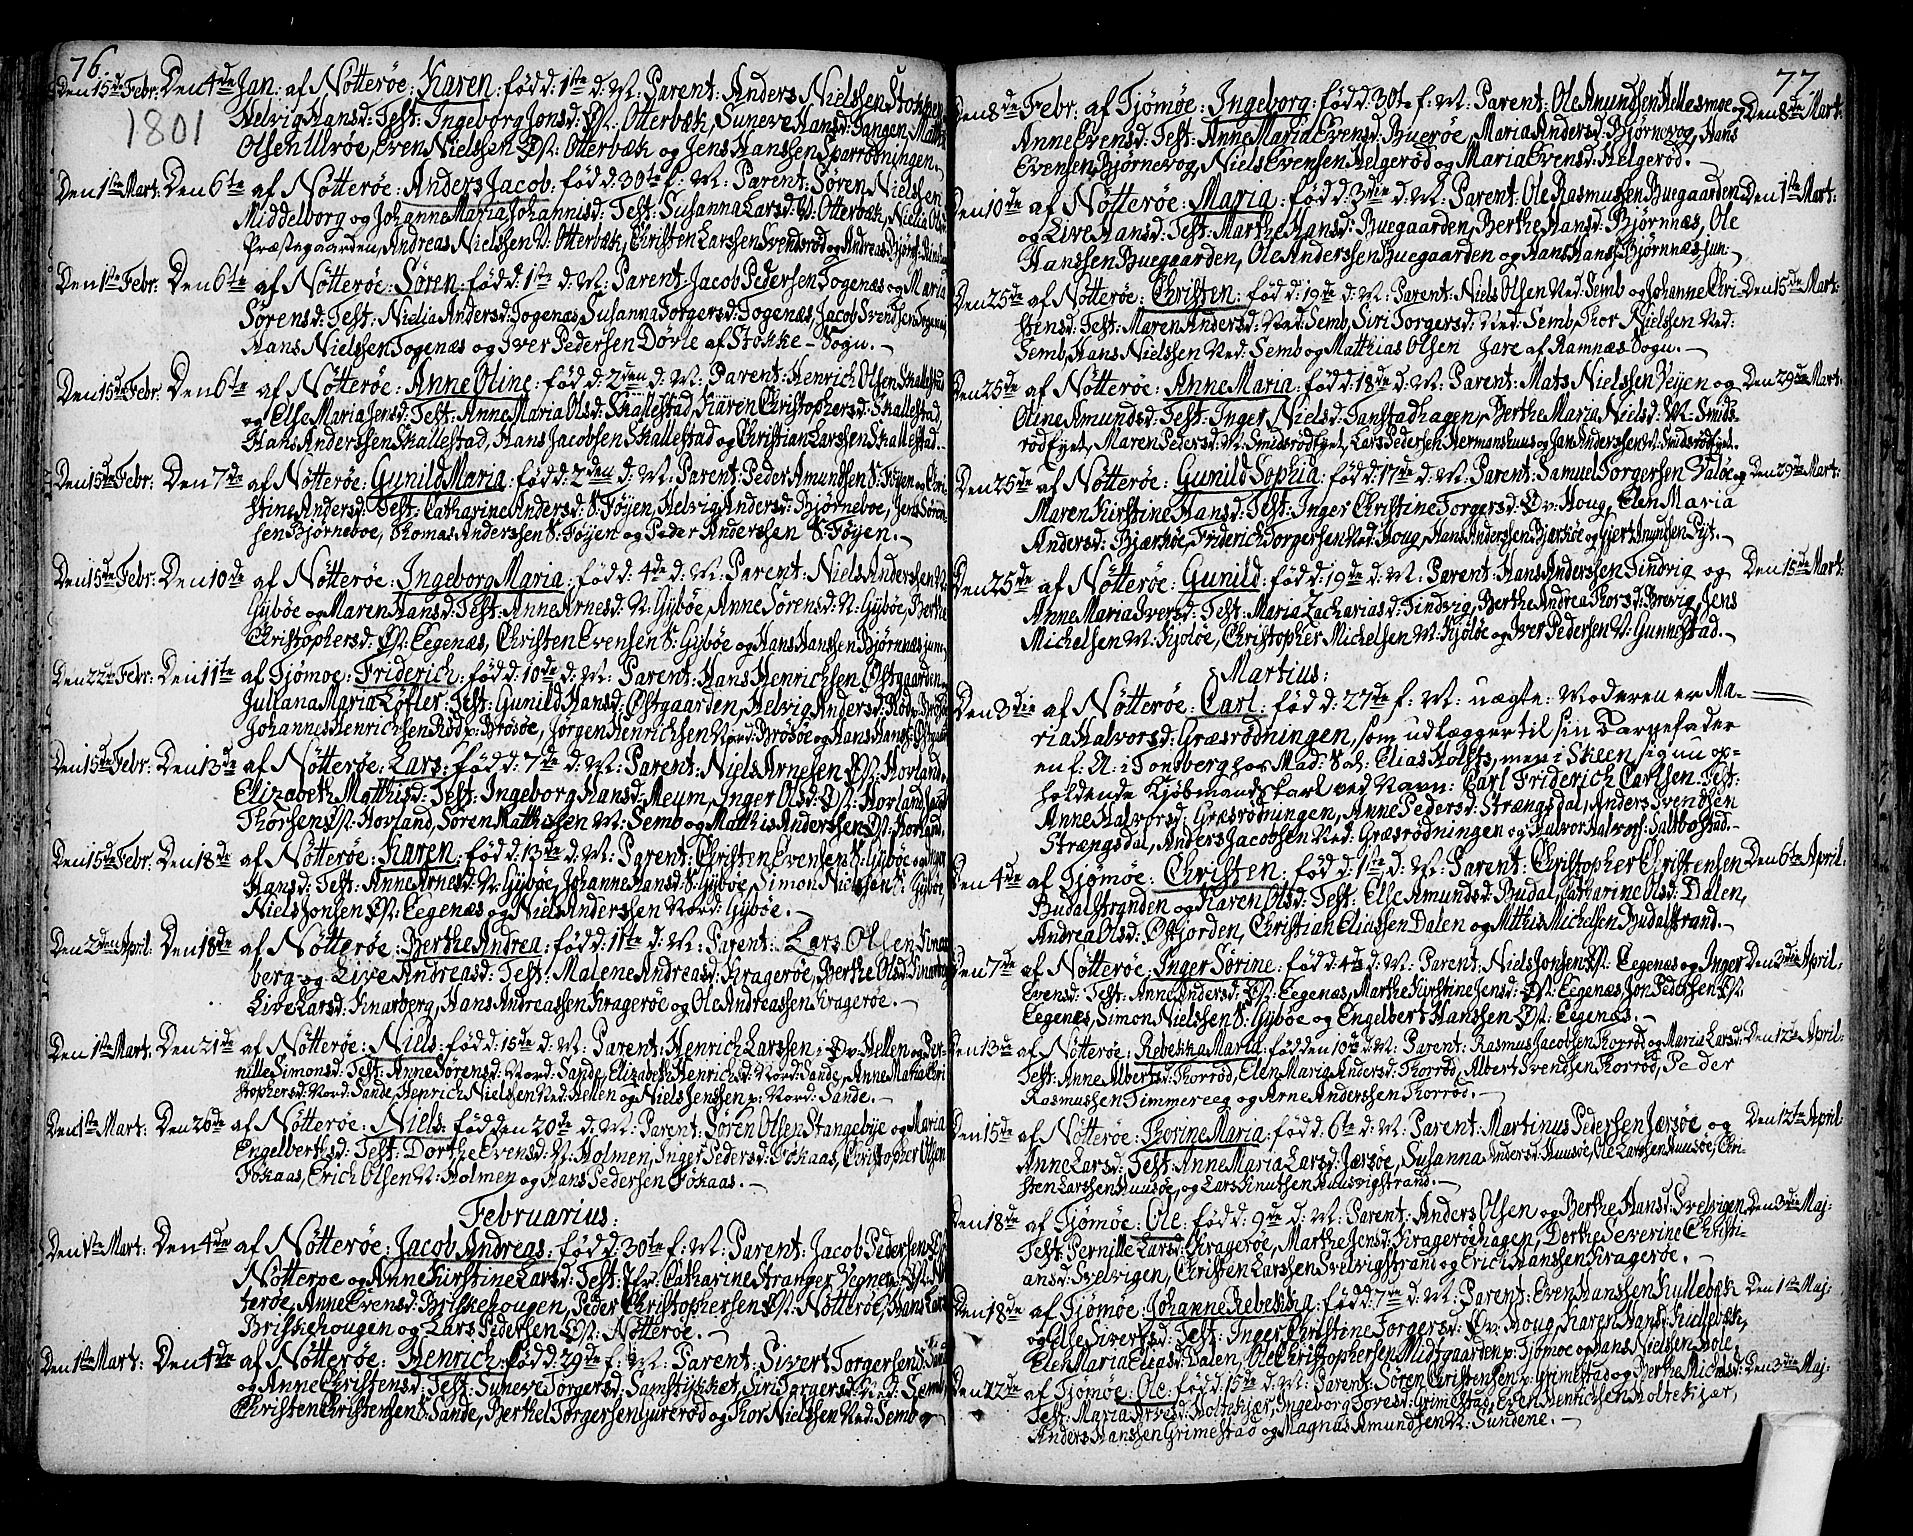 76.
Den 15de Febr: Den 4de Jan: af Nötteröe: Karen: född: 1ste d: M: Parent: Anders Nielssen Stokken
1801
Helvig Hansd: Test: Ingeborg Jonsd: Øst: Otterbæk, Suneve Hansd: Tangen, Mathis
Olsen Ulröe, Even Nielssen Øst: Otterbæk og Jens Hanssen Sparrödningen.
Den 1ste Mart: Den 6te af Nötteröe: Anders Jacob: född: 30te f: M: Parent: Sören Nielsen
Middelborg og Johanne Maria Johannisd: Test: Susanna Larsd: V: Otterbæk, Nielia Olsd:
Præstegaarden, Andreas Nielssen V: Otterbæk, Christen Larssen Svendsröd og Andreas Björns:
Den 1ste Febr: Den 6te af Nötteröe: Sören: född: 1ste d: M: Parent: Jacob Pedersen Togenæs og Maria
Sörensd: Test: Nielia Andersd: Togenæs, Susanna Torgersd: Togenæs, Jacob Svendsen Togenæs,
Hans Nielssen Togenæs og Iver Pedersen Dörle af Stokke-Sogn.
Den 15de Febr: Den 6te af Nötteröe: Anne Oline: född: 2den d: M: Parent: Henrich Olsen Skallestad
og Else Maria Jensd: Test: Anne Maria Olsd: Skallestad, Karen Christophersd: Skallestad,
Hans Anderssen Skallestad, Hans Jacobsen Skallestad og Christian Larssen Skallestad.
Den 15de Febr: Den 7de af Nötteröe: Gunild Maria: född: 2den d: M: Parent: Peder Amundsen S: Föyen og Chri-
stine Andersd: Test: Catharine Andersd: S: Föyen, Helvig Andersd: Björneboe, Jens Sören-
sen Björneboe, Thomas Anderssen S: Föyen og Peder Anderssen S: Föyen.
Den 15de Febr: Den 10de af Nötteröe: Ingeborg Maria: född: 4de d: M: Parent: Niels Anderssen N:
Gyböe og Maren Hansd: Test: Anne Arnesd: N: Gyböe, Anne Sörensd: N: Gyböe, Berthe
Christophersd: Øst: Eegenæs, Christen Evensen S: Gyböe og Hans Hanssen Björnnæs jun:
Den 22de Febr: Den 11te af Tjömöe: Friderich: född: 10de d: M: Parent: Hans Henrichsen Østgaarden
Juliana Maria Löfler: Test: Gunild Hansd: Østgaarden, Helvig Andersd: Röd p: Brösöe
Johannes Henrichsen Röd p: Brösöe, Jörgen Henrichsen Nord: Brösöe og Hans Hanss:
Den 15de Febr: Den 13de af Nötteröe: Lars: född: 7de d: M: Parent: Niels Arnesen Øst: Hovland
Elizabeth Mathisd: Test: Ingeborg Hansd: Meum, Inger Olsd: Øst: Hovland,
Thorsen Øst: Hovland, Sören Mathissen V: Semb og Mathis Anderssen Øst: Hovland,
Den 15de Febr: Den 18de af Nötteröe: Karen: född: 13de d: M: Parent: Christen Evensen S: Gyböe og Inger
Hansd: Test: Anne Arnesd: N: Gyböe, Johanne Hansd: S: Gyböe, Simon Nielssen S: Gyböe,
Niels Jonsen Øst: Eegenæs og Niels Anderssen Nord: Gyböe.
Den 2den April: Den 18de af Nötteröe: Berthe Andrea: född: 11te d: M: Parent: Lars Olsen Kinar-
berg og Live Andreasd: Test: Malene Andreasd: Krageröe, Berthe Olsd: Kinarberg
Live Larsd: Kinarberg, Hans Andreassen Krageröe og Ole Andreassen Krageröe.
Den 1ste Mart: Den 21de af Nötteröe: Niels: född: 15de d: M: Parent: Henrich Larssen i Øv: Hellen og Per-
nille Simonsd: Test: Anne Sörensd: Nord: Sande, Elizabeth Henrichsd: Nord: Sande, Anne Maria Chri-
stophersd: Nord: Sande, Henrich Nielssen Ned: Hellen og Niels Jenssen p: Nord: Sande.
Den 1ste Mart: Den 26de af Nötteröe: Niels: född den 20de d: M: Parent: Sören Olsen Stangebye og Maria
Engelbertsd: Test: Dorthe Evensd: N: Holmen, Inger Pedersd: Fökaas, Christopher Olsen
Fökaas, Erich Olsen N: Holmen og Hans Pedersen Fökaas.
Februarius:
Den 1ste Mart: Den 4de af Nötteröe: Jacob Andreas: född: 30te f: M: Parent: Jacob Pedersen Øst:
Nötteröe og Anne Kirstine Larsd: Test: Jfr: Catharine Stranger Vegner, Øst: Nöt-
teröe, Anne Evensd: Briskehougen, Peder Christophersen Øst: Nötteröe, Hans Larss:
Briskehougen og Lars Pedersen Øst: Nötteröe.
Den 1ste Mart: Den 4de af Nötteröe: Henrich: född: 29de f: M: Parent: Sivert Torgersen S: Sande
og Anne Christensd: Test: Sunevi Torgersd: Samstikket, Siri Torgersd: Ned: Semb,
Christen Christensen S: Sande, Berthel Torgersen Gureröd og Thor Nielssen Ned: Semb
77.
Den 8de Febr: af Tjömöe: Ingeborg: född: 30te f: M: Parent: Ole Amundsen Hellesmoe og Den 8de Mart:
Anne Evensd: Test: Anne Maria Evensd: Bueröe, Maria Andersd: Björnevog, Hans
Evensen Björnevog, Niels Evensen Helgeröd og Maria Evensd: Helgeröd.
Den 10de af Nötteröe: Maria: född: 3die d: M: Parent: Ole Rasmussen Buegaarden Den 1ste Mart:
og Live Hansd: Test: Marthe Hansd: Buegaarden, Berthe Hansd: Björnnæs, Ole
Hanssen Buegaarden, Ole Anderssen Buegaarden og Hans Hanss: Björnnæs jun:
Den 25de af Nötteröe: Christen: född: 19de d: M: Parent: Niels Olsen Ned: Semb og Johanne Chri- Den 15de Mart:
stensd: Test: Maren Andersd: Ned: Semb, Siri Torgersd: Ned: Semb, Thor Nielssen Ned:
Semb, Hans Nielssen Ned: Semb og Matthias Olsen Jare af Ramnæs Sogn.
Den 25de af Nötteröe: Anne Maria: född: 18de d: M: Parent: Mats Nielssen Veyen og Den 29de Mart:
Oline Amundsd: Test: Inger Nielsd: Tanstadhagen, Berthe Maria Nielsd: V: Smids-
röd Eyet, Maren Pedersd: V: Smidsröd Eyet, Lars Pedersen Hermanhuus og Jan Anderssen V: Smidsröd Eyet.
Den 25de af Nötteröe: Gunild Sophia: född: 17de d: M: Parent: Samuel Torgersen Valöe og Den 29de Mart:
Maren Kirstine Hansd: Test: Inger Christine Torgersd: Øv: Houg, Elen Maria
Andersd: Bjerköe, Friderich Torgersen Ned: Houg, Hans Anderssen Bjerköe og Gjert Amundsen Pyt.
Den 25de af Nötteröe: Gunild: född: 19de d: M: Parent: Hans Anderssen Tindvig og Den 15de Mart:
Anne Maria Iversd: Test: Maria Zachariasd: Tindvig, Berthe Andrea Thorsd: Brevig, Jens
Michelsen V: Kjölöe, Christopher Michelsen V: Kjölöe og Iver Pedersen V: Gunnestad.
Martius:
Den 3die af Nötteröe: Carl: född: 27de f: M: uægte: Moderen er Ma-
ria Halvorsd: Græsrödningen, som udlægger til sin Barnefader
en f: A: i Tönsberg hos Mad: Sal: Elias Holsts, men i Skeen sig nu op-
holdende Kjöbmandskarl ved Navn: Carl Friderich Carlsen. Test:
Anne Halvorsd: Græsrödningen, Anne Pedersd: Strængsdal, Anders Svendsen
Strængsdal, Anders Jacobsen Ned: Græsrödningen og Halvor Halvors: Saltbo stad.
Den 4de af Tjömöe: Christen: född: 1ste d: M: Parent: Christopher Christensen Den 6te April:
Budalstranden og Karen Olsd: Test: Else Amundsd: Budal, Catharine Olsd: Dalen,
Andrea Olsd: Østjorden, Christian Eliassen Dalen og Mathis Michelsen Budalstrand.
Den 7de af Nötteröe: Inger Sörine: född: 4de d: M: Parent: Niels Jonsen Øst: Eegenæs og Inger Den 3die April:
Evensd: Test: Anne Andersd: Øst: Eegenæs, Marthe Kirstine Jensd: Øst: Eegenæs, Jon Pedersen Øst:
Eegenæs, Simon Nielssen S: Gyböe og Engelbert Hanssen Øst: Eegenæs.
Den 13de af Nötteröe: Rebekka Maria: född den 10de d: M: Parent: Rasmus Jacobsen Thorröd og Maria Larsd: Den 12te April:
Test: Anne Albertsd: Thorröd, Elen Maria Andersd: Thorröd, Albert Svendsen Thorröd, Peder
Rasmussen Timmereeg og Arne Anderssen Thorröd.
Den 15de af Nötteröe: Thorine Maria: född: 6te d: M: Parent: Martinus Pedersen Jærsöe og Den 12te April
Anne Larsd: Test: Anne Maria Larsd: Jærsöe, Susanna Andersd: Huusöe, Ole Larssen Huusöe, Chri-
sten Larssen Huusöe, og Lars Knutsen Huusvigstrand.
Den 18de af Tjömöe: Ole: född: 9de d: M: Parent: Anders Olsen og Berthe Hansd: Svelvigen Den 3die Maj:
Test: Pernille Larsd: Krageröe, Marthe Jensd: Krageröehagen, Dorthe Severine Christi-
ansd: Svelvigen, Christen Larssen Svelvigstrand og Erich Hanssen Krageröe.
Den 18de af Tjömöe: Johanne Rebekka: född: 7de d: M: Parent: Even Hanssen Kullebæk Den 1ste Maj:
og Else Sivertsd: Test: Inger Christine Torgersd: Øv: Houg, Karen Hansd: Kullebæk,
Elen Maria Eliasd: Dalen, Ole Christophersen Midtgaarden p: Tjömöe og Hans Nielssen Hole.
Den 22de af Tjömöe: Ole: född: 15de d: M: Parent: Sören Christensen v: Grimestad og Berthe Michelsd: Den 3die Maj:
Test: Maria Arvesd: Holtekjær, Ingeborg Toresd: Grimestad, Even Henrichsen Holtekjær,
Anders Hanssen Grimestad og Magnus Amundsen N: Sundene.